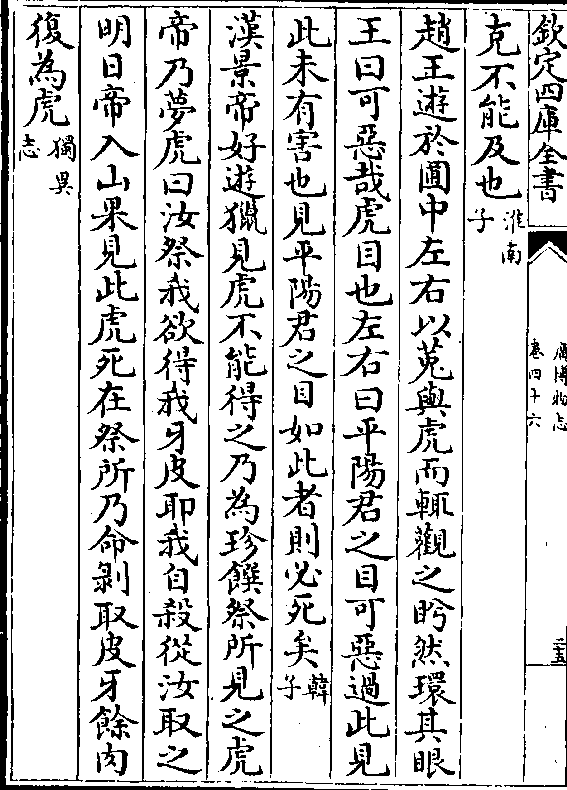 欽定四庫全書
廣博物志
卷四十六
二五
克不能及也淮南子
趙王遊於圃中左右以菟與虎而輒觀之盻然環其眼
王曰可惡哉虎目也左右曰平陽君之目可惡過此見
此未有害也見平陽君之目如此者則必死矣韓子
漢景帝好遊獵見虎不能得之乃為珍饌祭所見之虎
帝乃夢虎曰汝祭我欲得我牙皮耶我自殺從汝取之
明日帝入山果見此虎死在祭所乃命剥取皮牙餘肉
復為虎獨異志